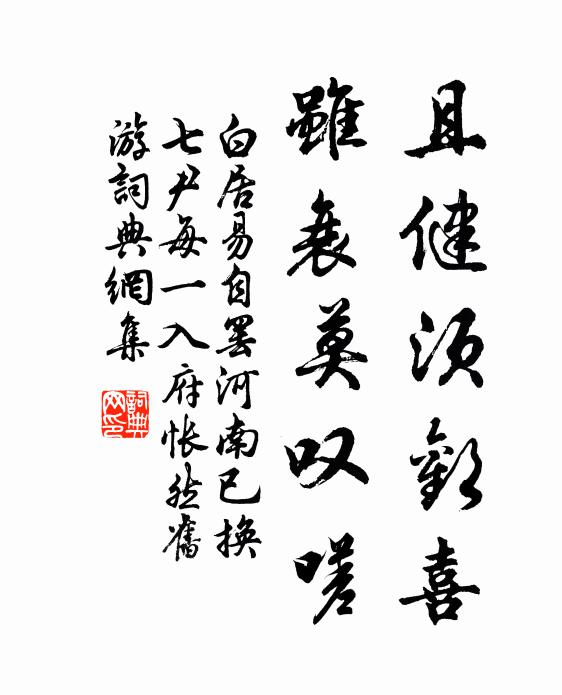 且健須歡喜
雖衰莫叹嗟
白居易自罢河南已换
七尹每一入府怅然舊
游詞典網集
詞典网印